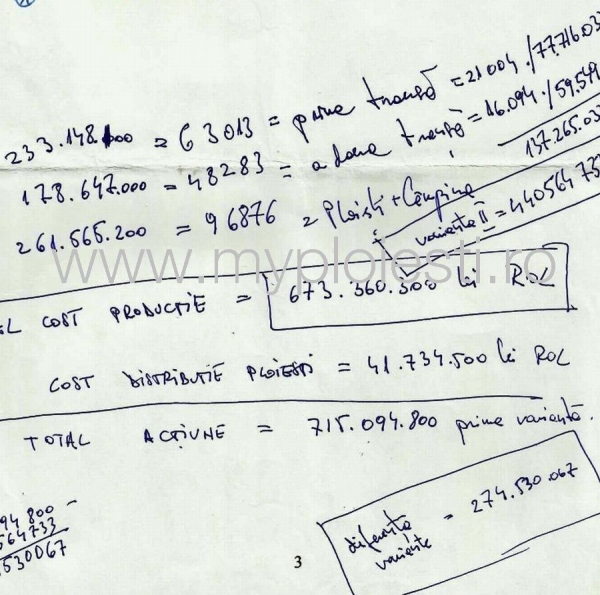 233.148.100 = 63013 = prima tranșă = 21004 /77.716.03
178.647.000 = 48283 = a doua tranșă = 16.094 /59.549
137.265.03
261.565.200 = 96876 = Ploiești + Câmpina
varianta II = 440564 73
www.myploiesti.ro
L COST PRODUCȚIE = 673.360.300 lei ROL
COST DISTRIBUȚIE PLOIEȘTI = 41.734.500 lei ROL
TOTAL ACȚIUNE = 715.094.800 prima variantă.
94 800 -
564733
530067
diferența variante = 274.530.067
3